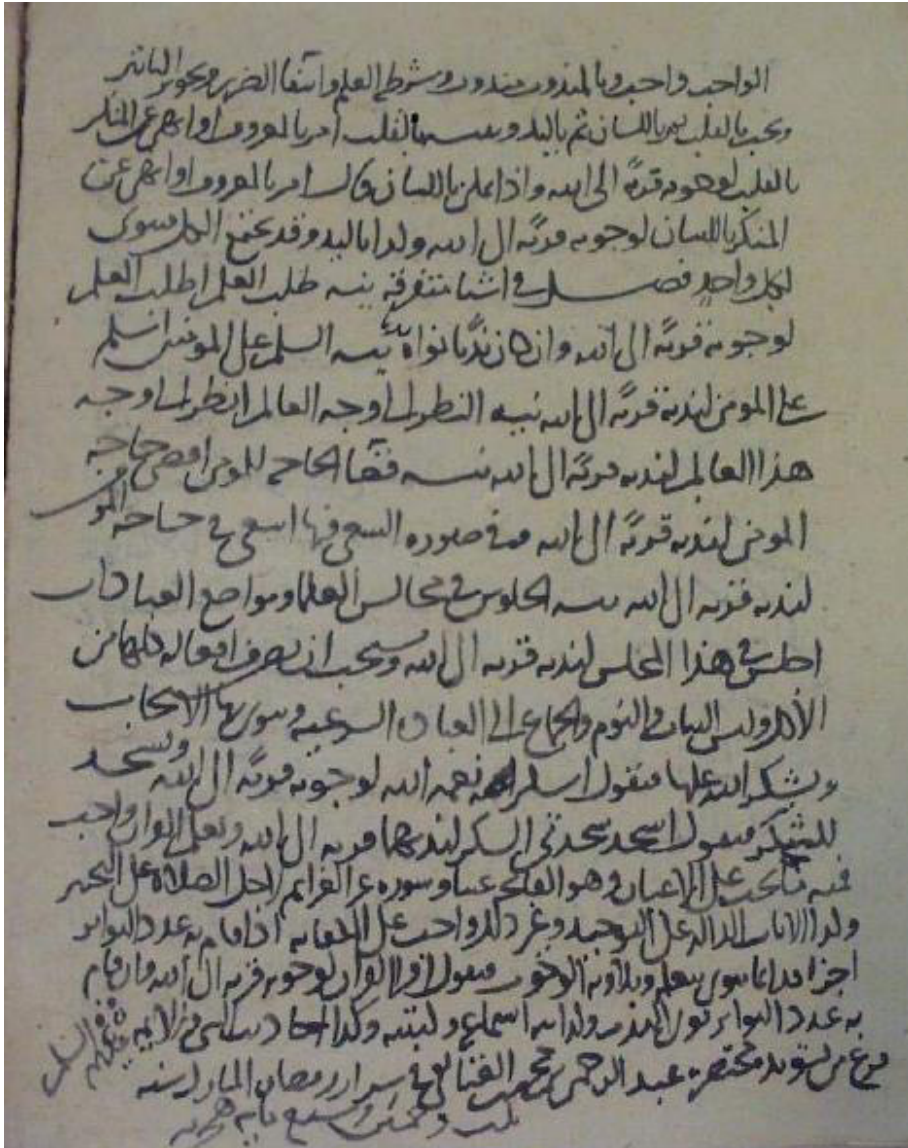 الواجب واجب وبالمندوب مندوب وشرط العلم وانتفا الضرر وتجويز التاثير
ويجب بالقلب ثم باللسان ثم باليد بالقلب امر بالمعروف او انهى عن المنكر
بالقلب لوجوبه قربة الى الله واذا باللسان قال امر بالمعروف او انهى عن
المنكر باللسان لوجوبه قربة الى الله وكذا باليد وقد يجتمع الكل سوى
لكل واحد فصل في اشيا متفرقة نية طلب العلم اطلب العلم
لوجوبه قربة الى الله وان كان ندبا نواه نية السلم على المومن اسلم
على المومن لندبه قربة الى الله نية النظر الى وجه العالم انظر الى وجه
هذا العالم لندبه قربة الى الله نية قضا الحاجة للمومن اقضي حاجة
المومن لندبه قربة الى الله وفي صورة السعي فيها اسعى في حاجة المومن
لندبه قربة الى الله نية الجلوس في مجالس العلما ومواضع العبادات
اجلس في هذا المجلس لندبه قربة الى الله ويستحب ان يصرف افعاله كلها من
الأكل ولبس الثياب والنوم والجماع الى العبادة الشرعية وينوي بها الاستحباب
ويشكر الله عليها فيقول اشكر نعمة الله لوجوبه قربة الى الله ويسجد
للشكر فيقول اسجد سجدتي الشكر لندبهما قربة الى الله وتعلم القران واجب
فمنه ما يجب على الاعيان وهو الفاتحة عينا وسورة الصلاة على التخيير
وكذا الايات الدالة على التوحيد وغير ذلك واجب على الكفاية اذا قام به عدد التواتر
اجزا الوجوب فيقول اقرا القران لوجوبه قربة الى الله فان قام
به عدد التواتر نوى الندب وكذا استماعه وكتبته وكذا الاحاديث عن الايمة عليهم السلم
فرغ من تسويده مختصره عبد الرحمن بن محمد العتائقي في رمضان المبارك سنة
وخمسين وسبع ماية هجرية